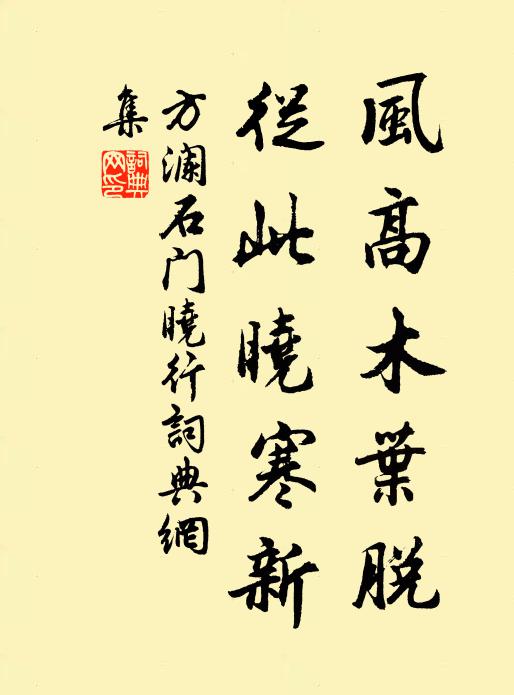 風高木葉脫
從此曉寒新
方瀾石门曉行詞典網
集
詞典网印